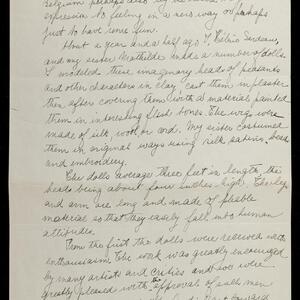 Belgium perhaps also by the desire to give
expression to feeling in a new way or perhaps
just to have some fun.
About a year and a half ago I,
and my sister Mathilde made a number of dolls.
I modeled these imaginary heads of peasants
and other characters in clay, cast them in plaster
then after covering them with a material painted
them in interesting flesh tones. The wigs were
made of silk, wool, or cord. My sister costumed
them in original ways using silk, satin, beads
and embroidery.
The dolls average three feet in length, the
heads being about four inches high. The legs
and arm are long and made of pliable
material so that they easily fall into human
attitudes.
From the first the dolls were received with
enthusiasm. The work was greatly encouraged
by many artists and critics and we were
greatly pleased with the approval of such men